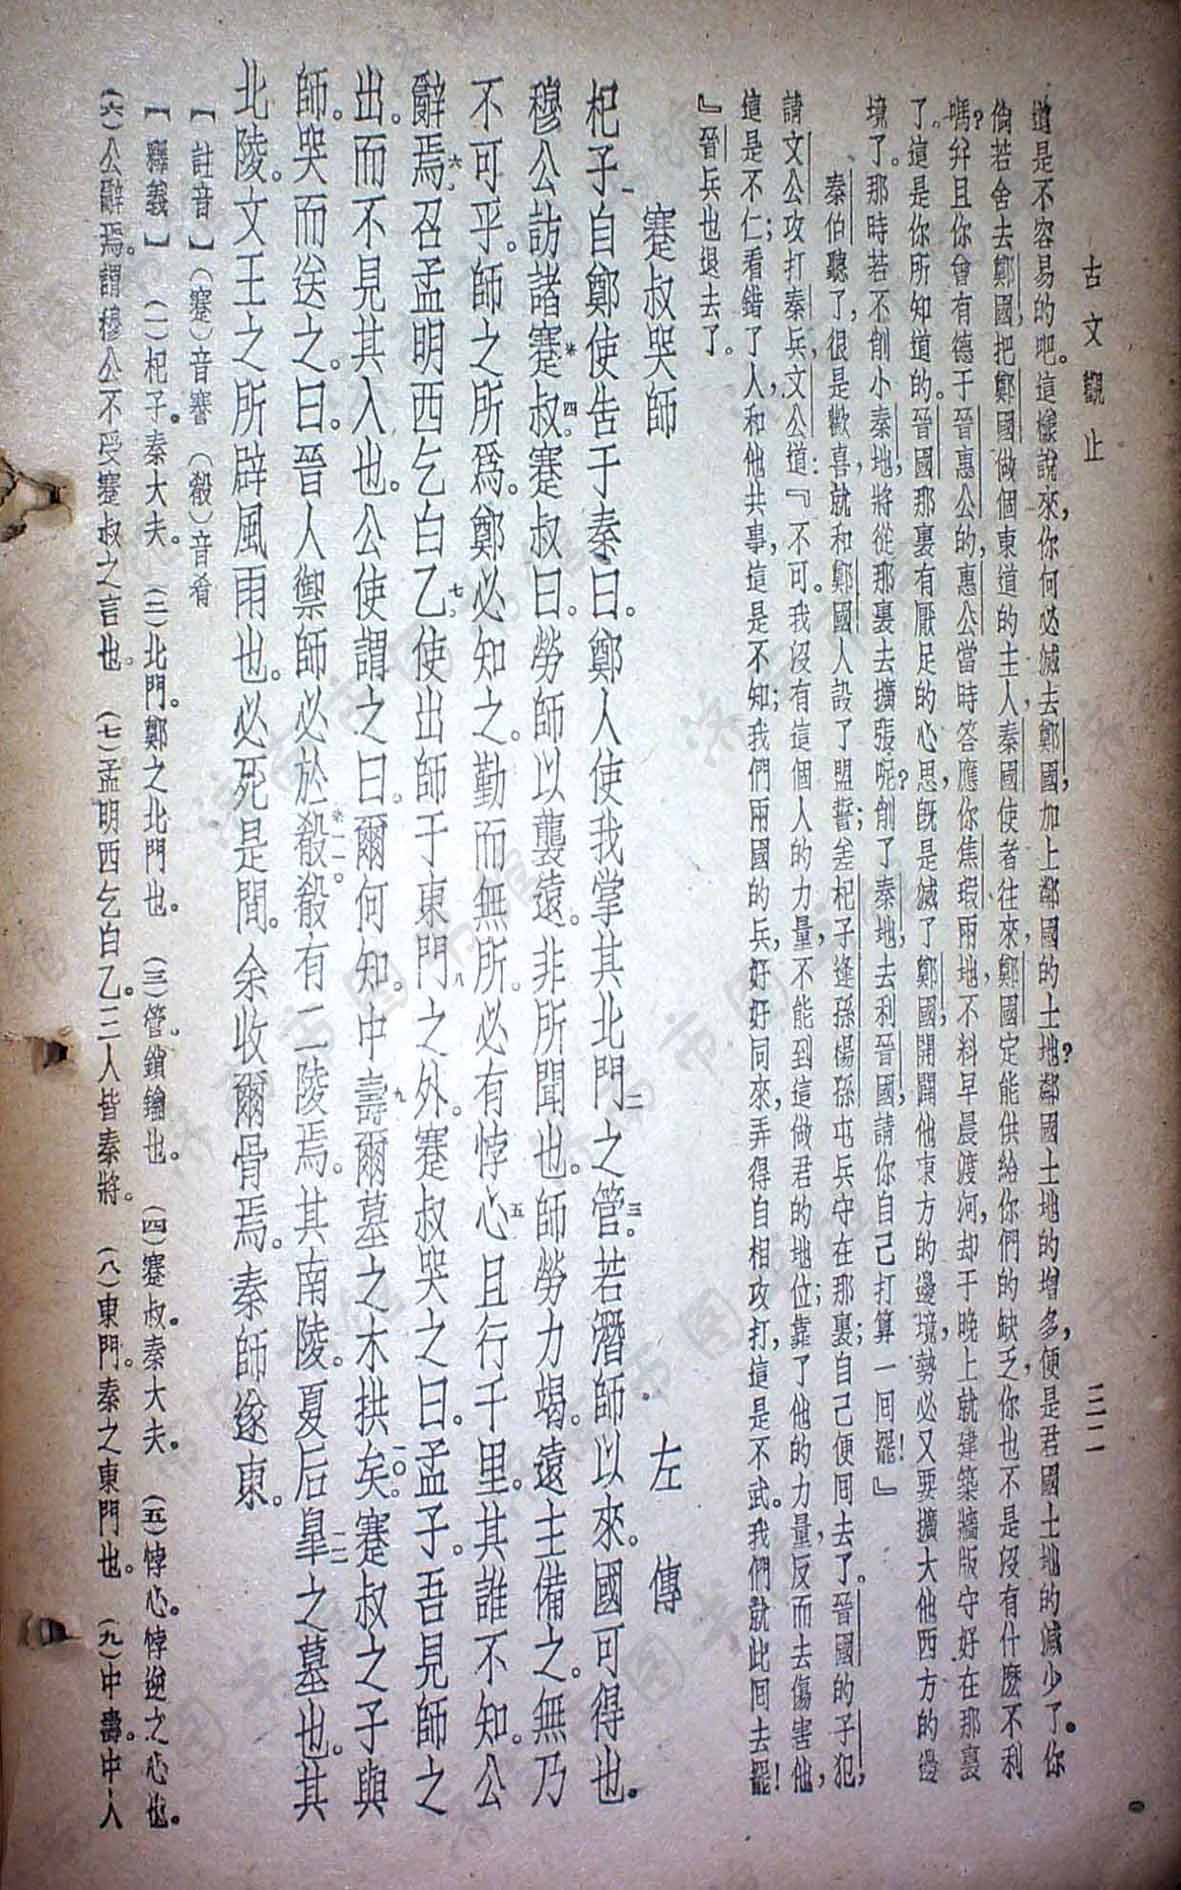 古文觀止
三二
道是不容易的吧。這樣說來，你何必滅去鄭國，加上鄰國的土地？鄰國土地的增多，便是君國土地的減少了。你
倘若舍去鄭國，把鄭國做個東道的主人，秦國使者往來，鄭國定能供給你們的缺乏，你也不是沒有什麽不利
嗎？幷且你會有德于晉惠公的，惠公當時答應你焦瑕兩地，不料早晨渡河，却于晚上就建築牆版守好在那裏
了。這是你所知道的。晉國那裏有厭足的心思，旣是滅了鄭國，開闢他東方的邊境，勢必又要擴大他西方的邊
境了。那時若不削小秦地，將從那裏去擴張呢？削了秦地，去利晉國，請你自己打算一囘罷！』
秦伯聽了，很是歡喜，就和鄭國人設了盟誓；差杞子逢孫楊孫屯兵守在那裏；自己便囘去了。晉國的子犯，
請文公攻打秦兵，文公道：『不可。我沒有這個人的力量，不能到這做君的地位；靠了他的力量，反而去傷害他，
這是不仁；看錯了人，和他共事，這是不知；我們兩國的兵，好好同來，弄得自相攻打，這是不武。我們就此囘去罷！
』晉兵也退去了。
蹇叔哭師　左傳
杞子一自鄭使告于秦曰。鄭人使我掌其北門二之管三。若潛師以來。國可得也。
穆公訪諸蹇＊叔四。蹇叔曰。勞師以襲遠。非所聞也。師勞力竭。遠主備之。無乃
不可乎。師之所爲。鄭必知之。勤而無所。必有悖心五且行千里。其誰不知。公
辭焉六。召孟明西乞白乙七使出師于東門八之外。蹇叔哭之曰。孟子。吾見師之
出。而不見其入也。公使謂之曰。爾何知。中壽九爾墓之木拱矣一〇。蹇叔之子與
師。哭而送之。曰。晉人禦師必於殽＊一一。殽有二陵焉。其南陵。夏后皐一二之墓也。其
北陵。文王之所辟風雨也。必死是間。余收爾骨焉。秦師遂東。
【註音】（蹇）音謇　（殽）音肴
【釋義】（一）杞子。秦大夫。（二）北門。鄭之北門也。（三）管。鎖鑰也。（四）蹇叔。秦大夫。（五）悖心。悖逆之心也。
（六）公辭焉。謂穆公不受蹇叔之言也。（七）孟明西乞白乙。三人皆秦將。（八）東門。秦之東門也。（九）中壽。中人